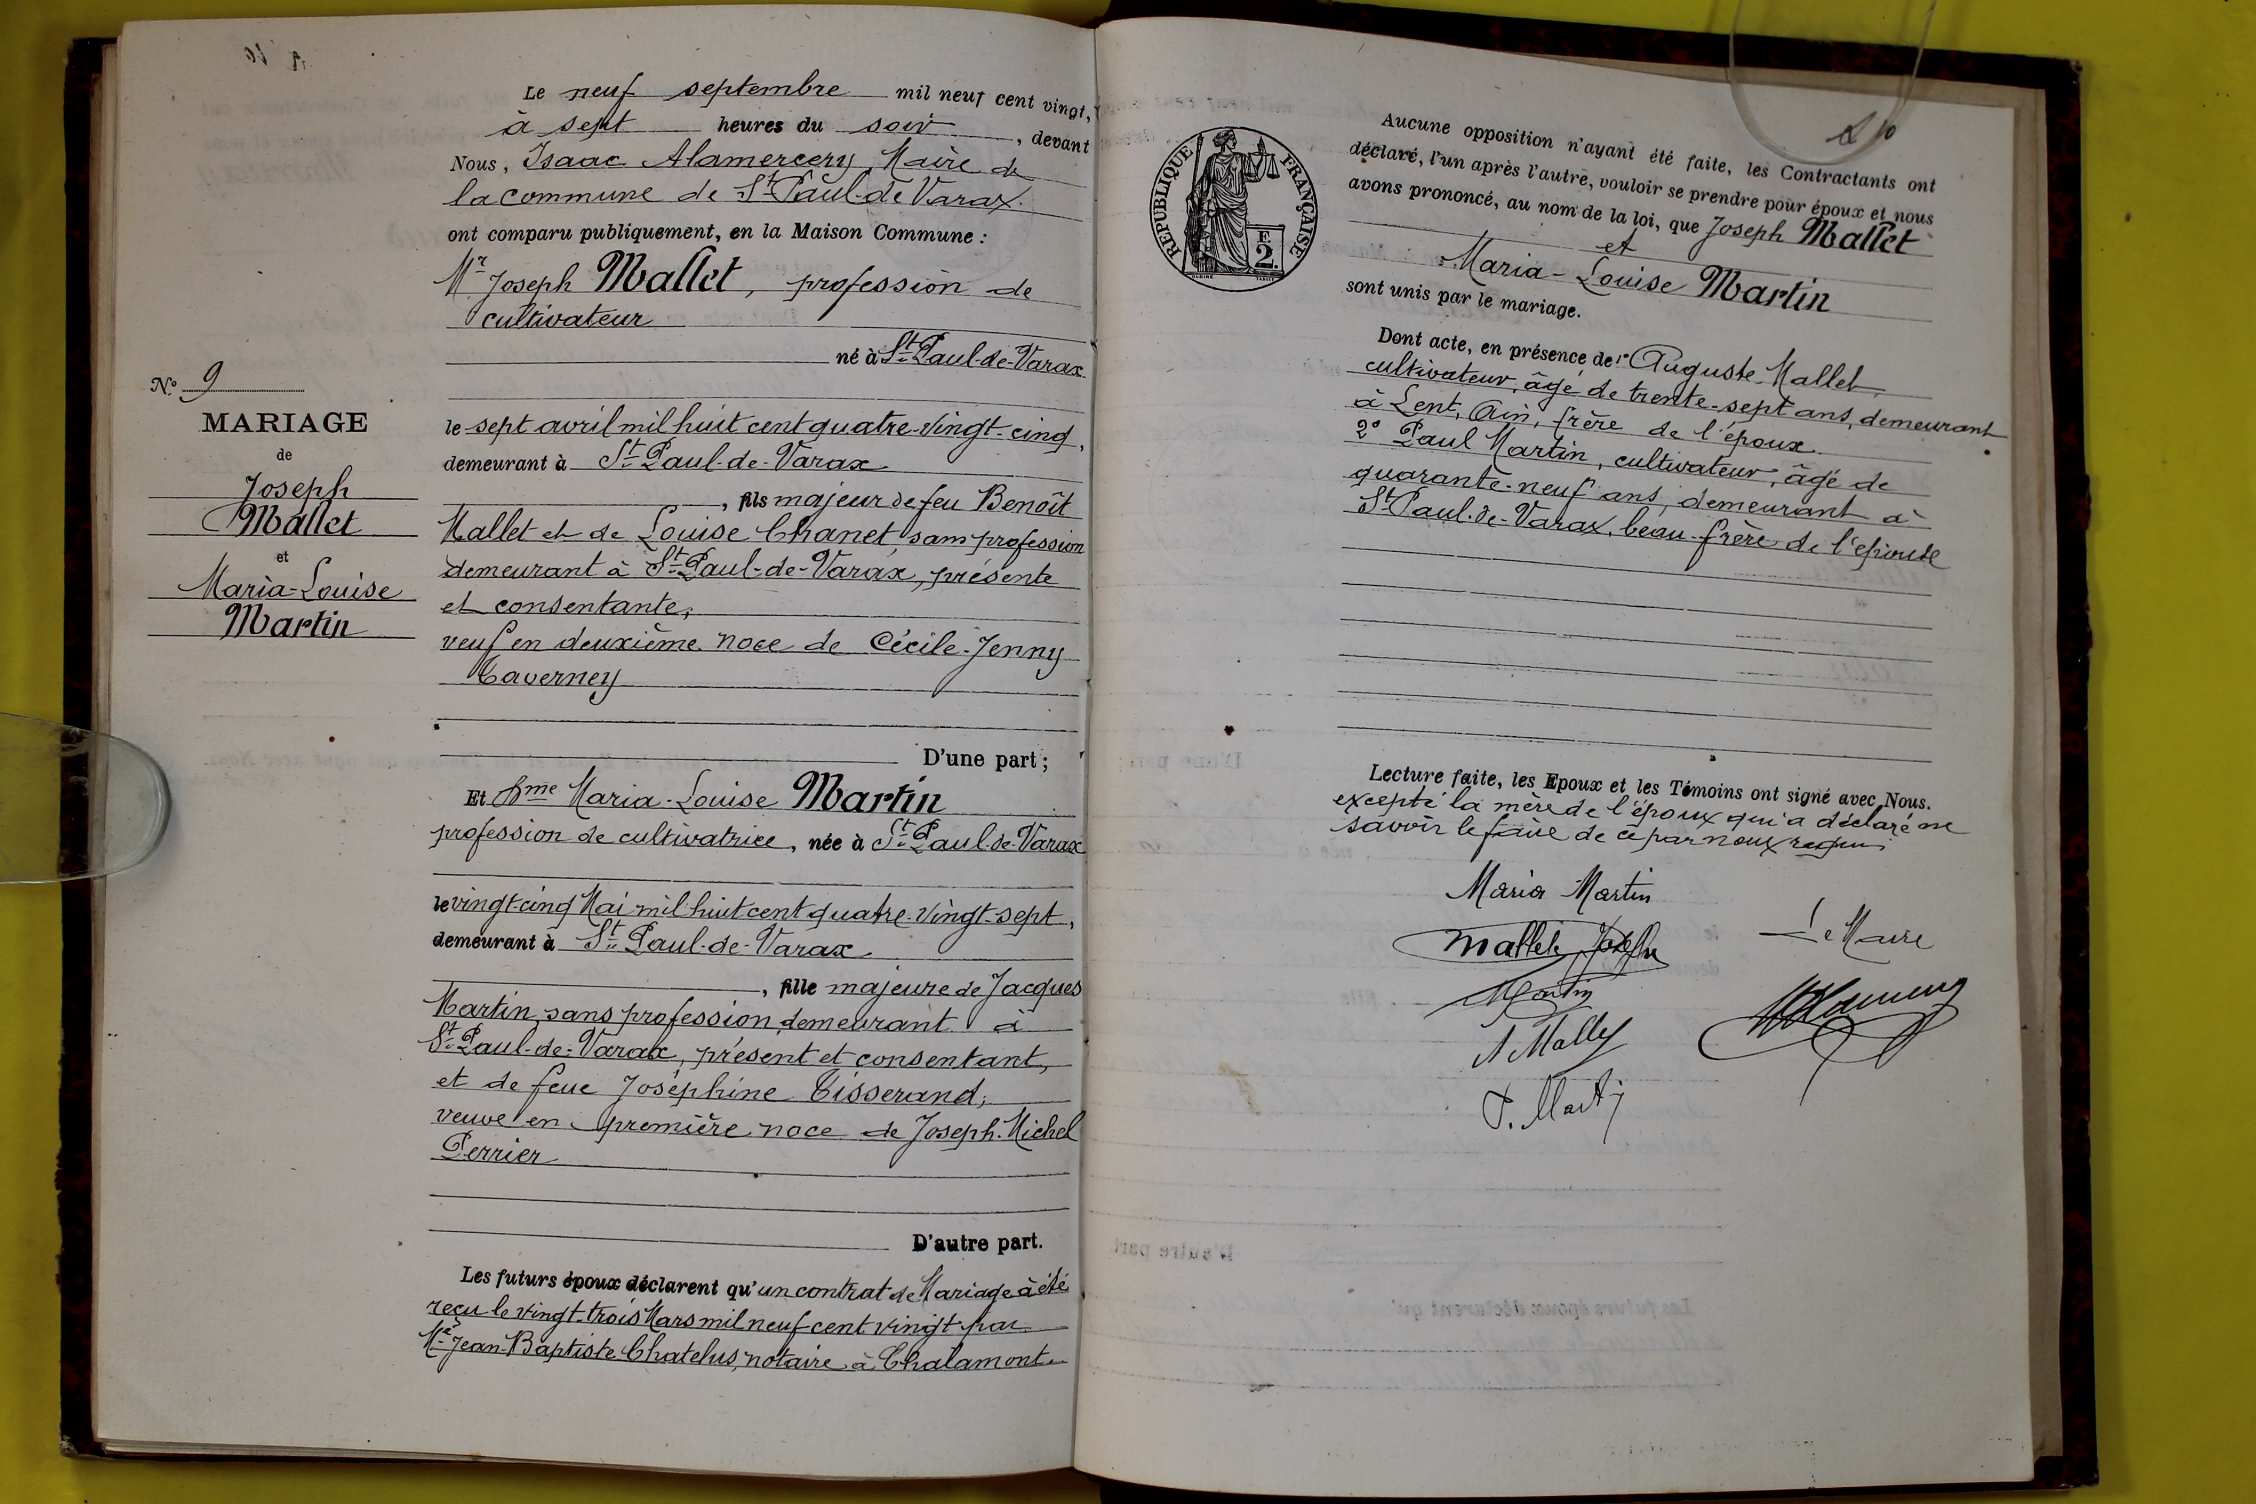 Le neuf septembre mil neuf cent vingt,
à sept heures du soir, devant
Nous, Isaac Alamercery, Maire de
la commune de St Paul-de-Varax.
ont comparu publiquement, en la Maison Commune :
Mr Joseph Mallet, profession de
cultivateur
né à St Paul-de-Varax
le sept avril mil huit cent quatre-vingt-cinq,
demeurant à St Paul-de-Varax
, fils majeur de feu Benoît
Mallet et de Louise Chanet, sans profession
demeurant à St Paul-de-Varax, présente
et consentante,
veuf en deuxième noce de Cécile-Jenny
Taverney
D'une part ;
N° 9
MARIAGE
de
Joseph
Mallet
et
Maria-Louise
Martin
Et Dme Maria-Louise Martin
profession de cultivatrice, née à St Paul-de-Varax
le vingt-cinq Mai mil huit cent quatre-vingt-sept,
demeurant à St Paul-de-Varax
, fille majeure de Jacques
Martin, sans profession, demeurant à
St Paul-de-Varax, présent et consentant,
et de feue Joséphine Tisserand,
veuve en première noce de Joseph-Michel
Perrier
D'autre part.
Les futurs époux déclarent qu'un contrat de Mariage à été
reçu le vingt-trois Mars mil neuf cent vingt par
Me Jean-Baptiste Chatelus, notaire à Chalamont.
10
RÉPUBLIQUE FRANÇAISE
F.
2.
Aucune opposition n'ayant été faite, les Contractants ont
déclaré, l'un après l'autre, vouloir se prendre pour époux et nous
avons prononcé, au nom de la loi, que Joseph Mallet
et
Maria-Louise Martin
sont unis par le mariage.
Dont acte, en présence de 1° Auguste Mallet,
cultivateur, âgé de trente-sept ans, demeurant
à Lent, Ain, frère de l'époux.
2° Paul Martin, cultivateur, âgé de
quarante-neuf ans, demeurant à
St Paul-de-Varax, beau-frère de l'épouse
Lecture faite, les Epoux et les Témoins ont signé avec Nous.
excepté la mère de l'époux qui a déclaré ne
savoir le faire de ce par nous requis
Maria Martin
Mallet Joseph
Le Maire
Martin
A Mallet
P. Martin